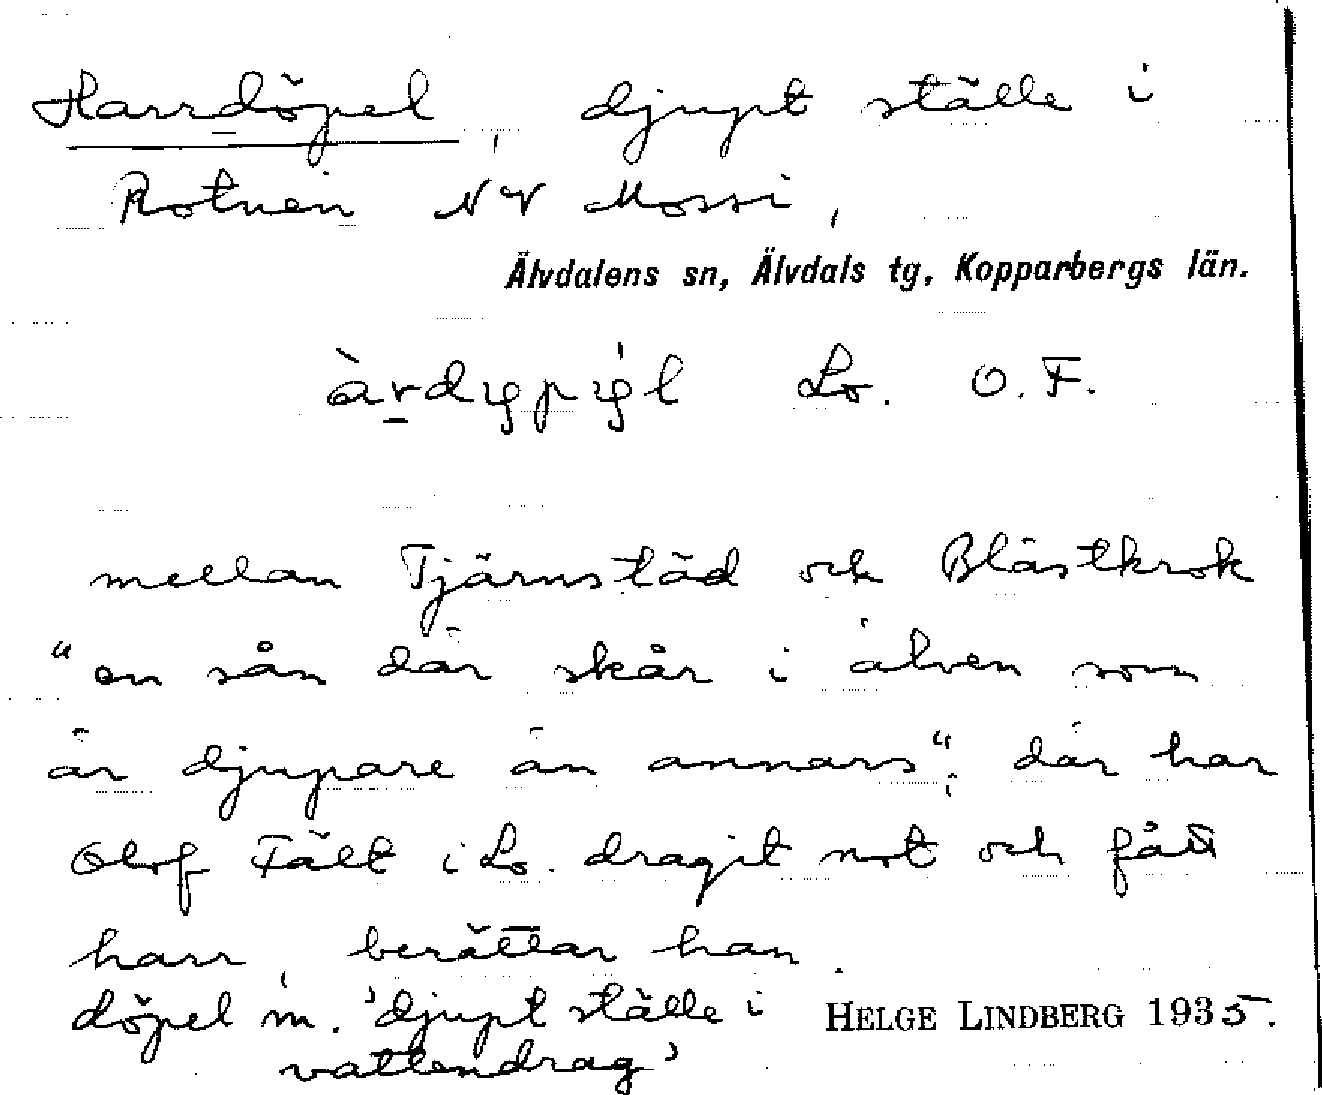 Harrdöpel, djupt ställe i
Rotnen NV Mossi,
Älvdalens sn, Älvdals tg, Kopparbergs län.
Lo. O.F.
mellan Tjärnstäd och Blästkrok
"en sån där skår i älven som
är djupare än annars"; där har
Olof Fält i Lo. dragit not och fått
harr, berättar han.
döpel m. 'djupt ställe i
vattendrag'
HELGE LINDBERG 1935.